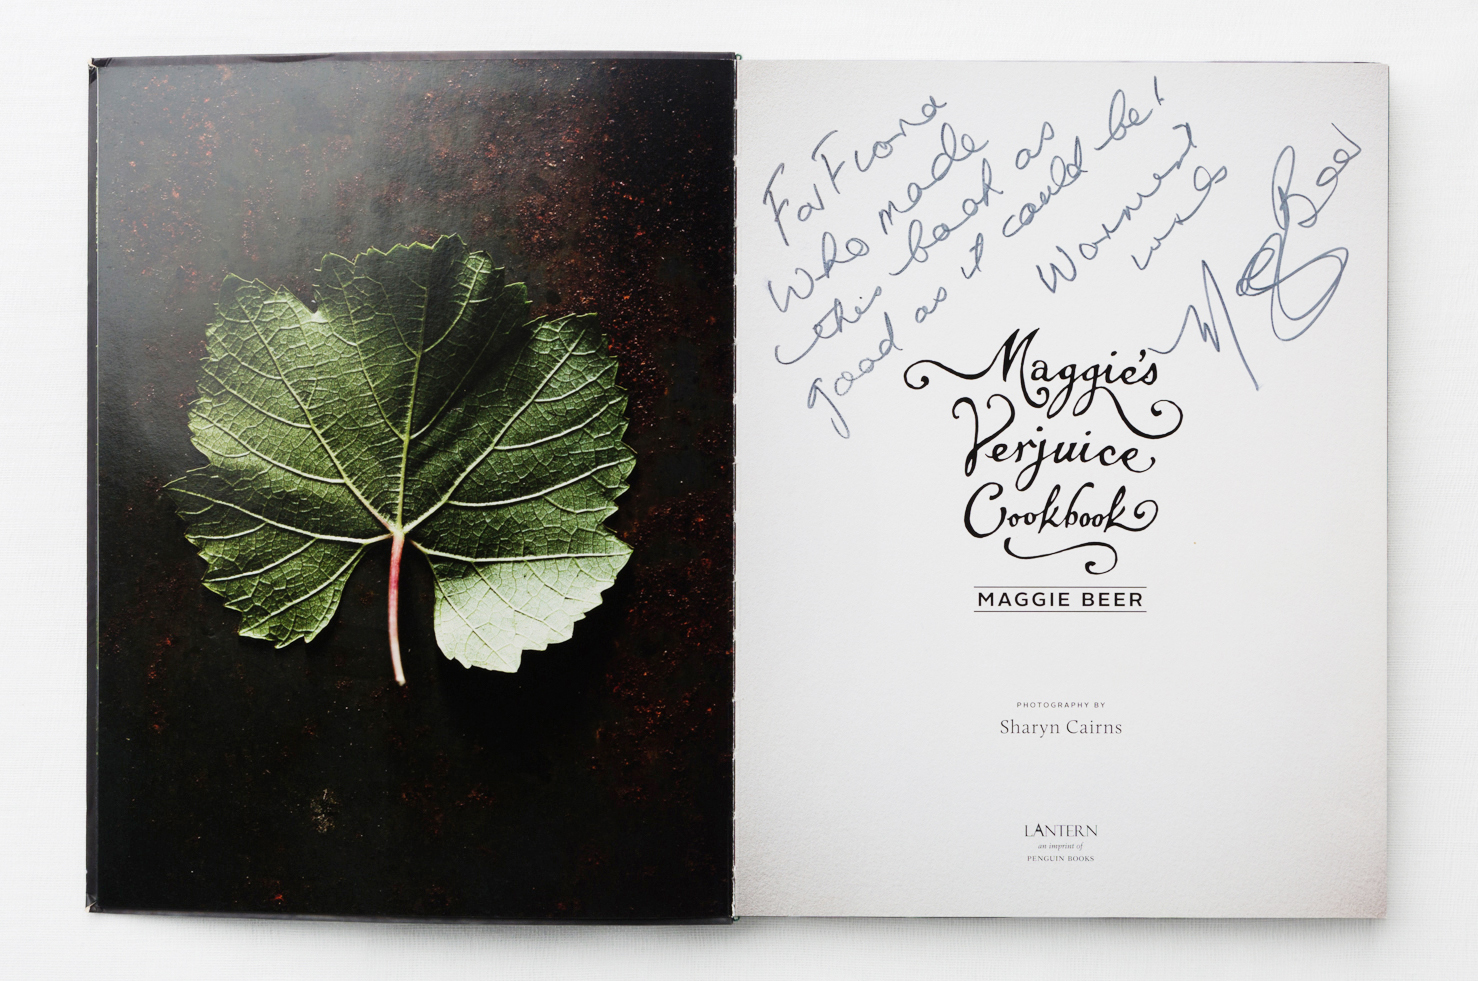 For Fiona
Who made
this book as
good as it could be!
Warmest
wishes
Maggie Beer
Maggie's
Verjuice
Cookbook
MAGGIE BEER
PHOTOGRAPHY BY
Sharyn Cairns
LANTERN
an imprint of
PENGUIN BOOKS